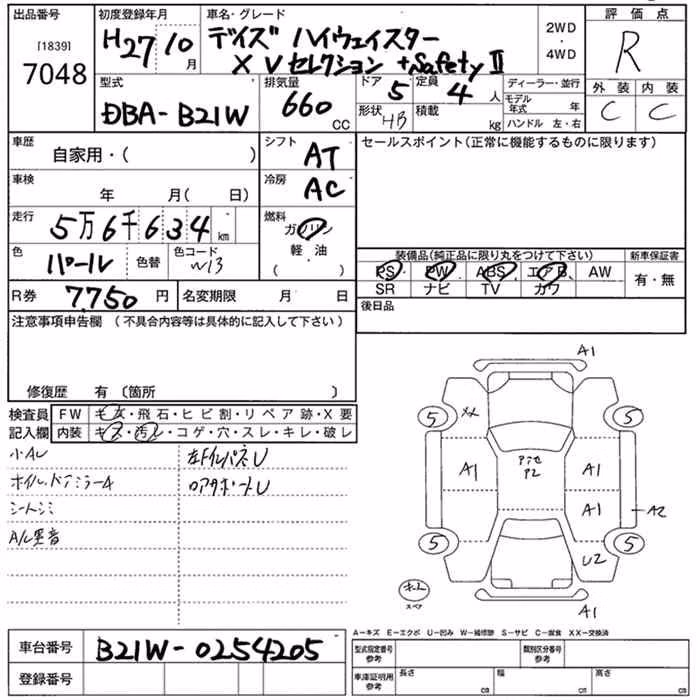 出品番号 初度登録年月 車名・グレード 評価点
[1839] H27 10月 デイズ ハイウェイスター 2WD・4WD R
7048 XVセレクション +Safety II
型式 排気量 ドア 定員 ディーラー・並行 外装 内装
DBA-B21W 660cc 5 4人 モデル年式 年 C C
形状 HB 積載 kg ハンドル 左・右
車歴 シフト セールスポイント(正常に機能するものに限ります)
自家用・( ) AT
車検 冷房
年 月( 日) AC
走行 燃料
5万6千634km ガソリン
軽・油
( )
色 色コード 装備品(純正品に限り丸をつけて下さい) 新車保証書
パール 色替 W13 PS PW ABS エアB AW 有・無
SR ナビ TV カワ
R券 7750円 名変期限 月 日 後日品
注意事項申告欄 (不具合内容等は具体的に記入して下さい)
修復歴 有 〔箇所 〕
検査員 FW キズ・飛石・ヒビ割・リペア跡・X要
記入欄 内装 キズ・汚レ・コゲ・穴・スレ・キレ・破レ
小AU 左ドインパネU
ホイル,ドアミラーA ロアサポートU
シートシミ
A/C異音
A1
5 XX 5
A1 アンセ P2 A1
A1 A2
5 U2 5
スペア A1
A-キズ E-エクボ U-凹み W-補修跡 S-サビ C-腐食 XX-交換済
車台番号 B21W-0254205 型式指定番号 参考 類別区分番号 参考
登録番号 車庫証明用 参考 長さ cm 幅 cm 高さ cm